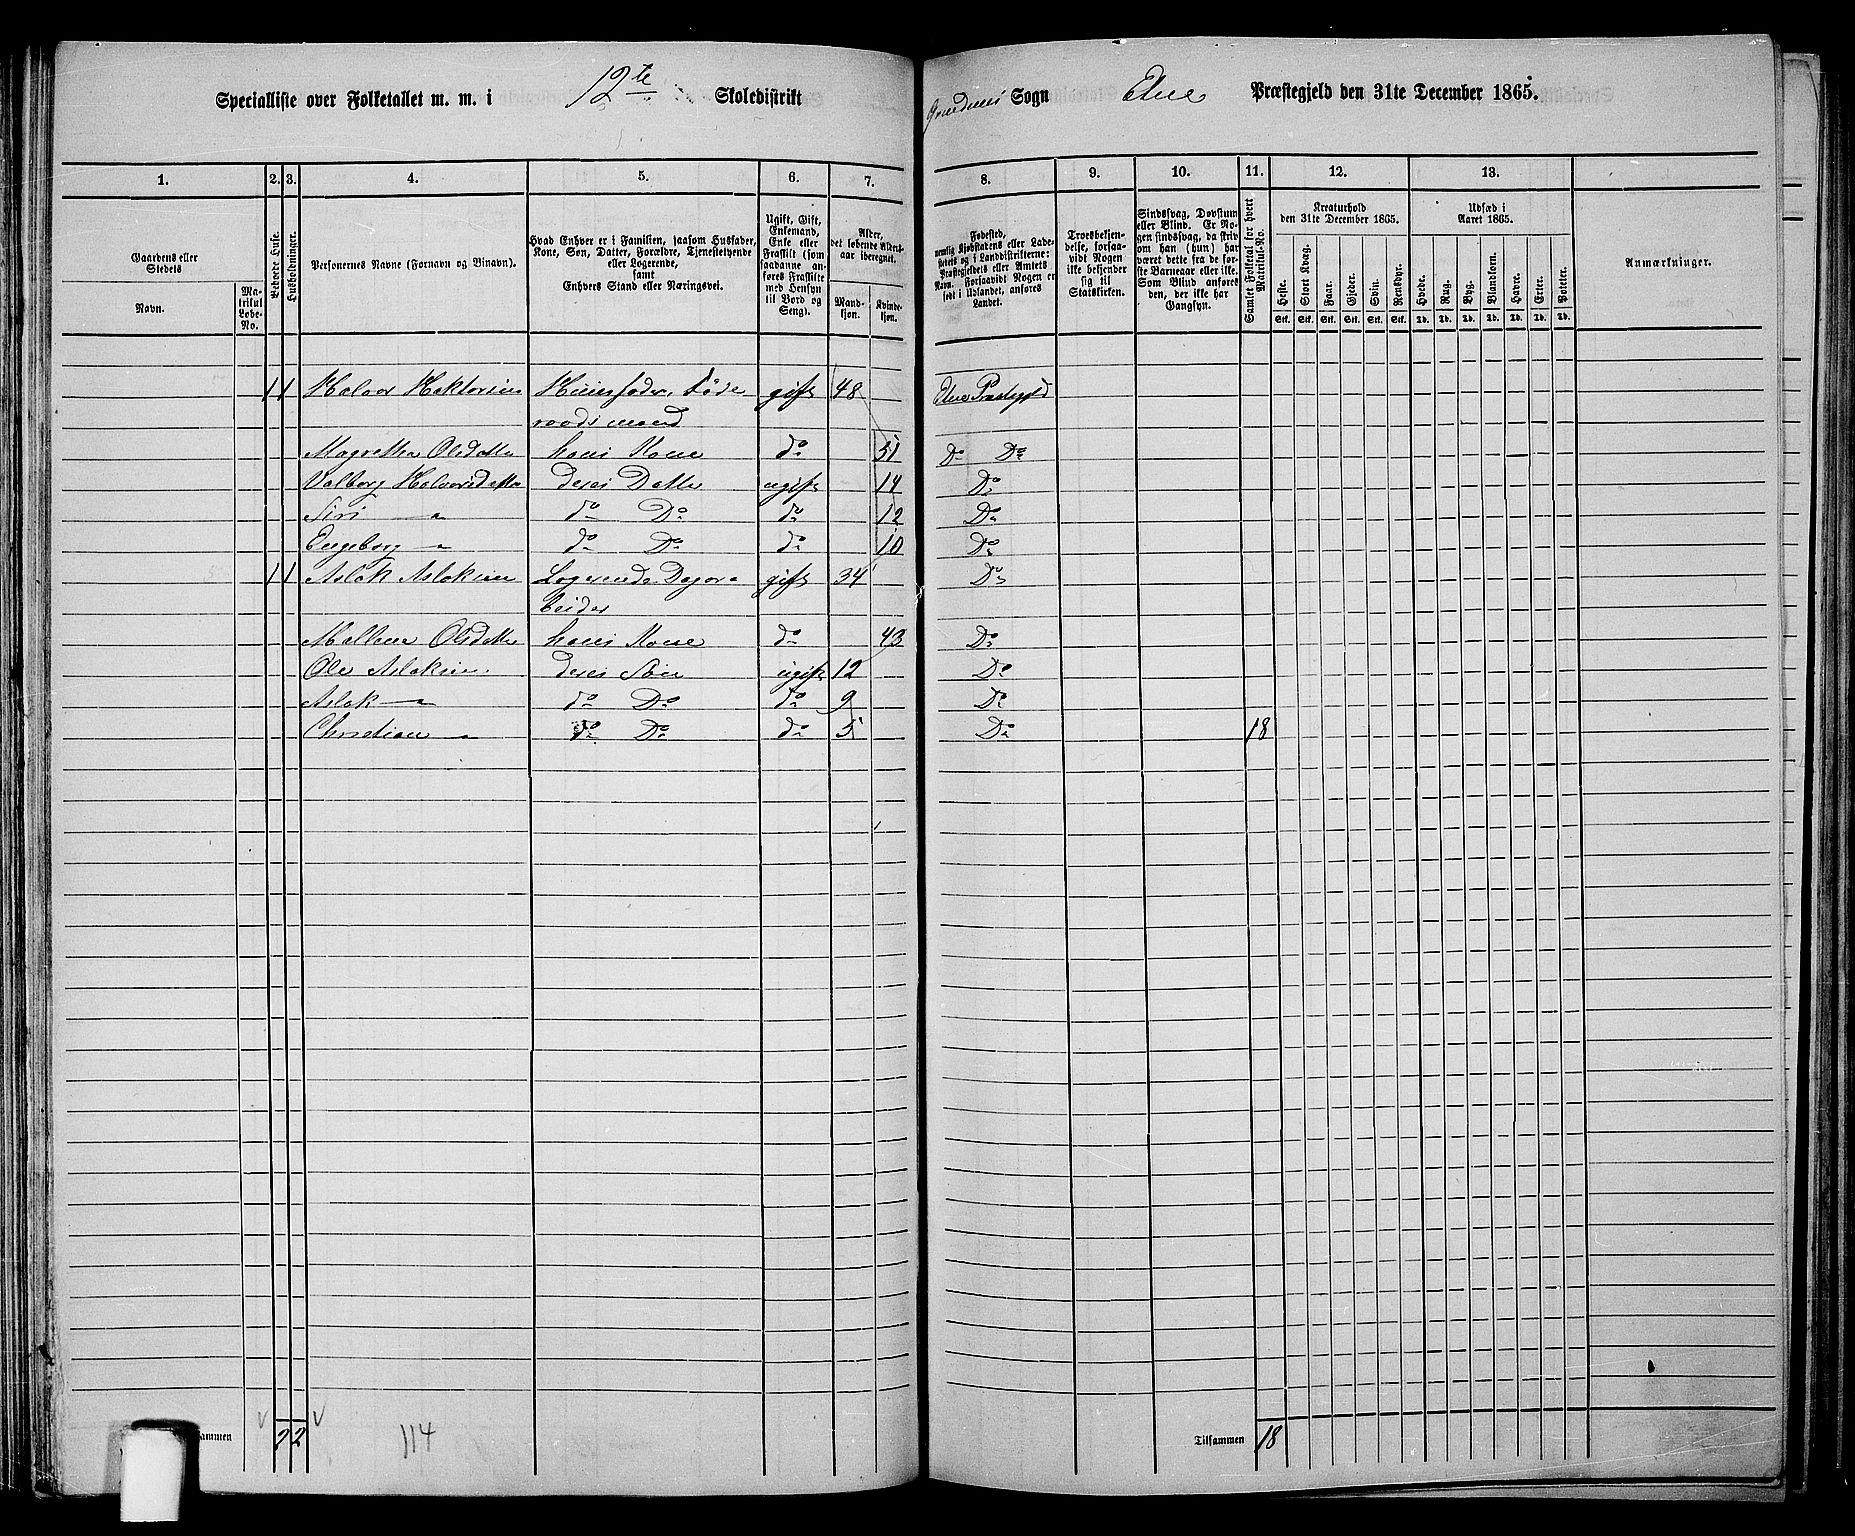 Specialliste over Folketallet m. m. i 12te Skoledistrikt
Sogn Etne Præstegjeld den 31te December 1865.
1. 2. 3. 4. 5. 6. 7. 8. 9. 10. 11. 12. 13.
Gaardens eller Stedets
Navn.
Matrikul Løbe-No.
Beboede Huse.
Husholdninger.
Personernes Navne (Fornavn og Binavn).
Hvad Enhver er i Familien, saasom Husfader,
Kone, Søn, Datter, Forældre, Tjenestetyende
eller Logerende,
samt
Enhvers Stand eller Næringsvei.
Ugift, Gift,
Enkemand,
Enke eller
Fraskilt (som
saadanne anføres
Fraskilte
med Hensyn
til Bord og
Seng).
Alder,
det løbende Alders-
aar iberegnet.
Mandkjøn.
Kvindekjøn.
Fødested,
nemlig Kjøbstadens eller Ladestedets
og i Landdistrikterne:
Præstegjeldets eller Amtets
Navn. Forsaavidt Nogen er
født i Udlandet, anføres
Landet.
Troesbekjendelse,
forsaavidt
Nogen
ikke bekjender
sig til
Statskirken.
Sindssvag, Døvstum
eller Blind. Er Nogen
sindssvag, da skriv
om han (hun) har
været dette fra de første
Barneaar eller ikke.
Som Blind anføres
den, der ikke har
Gangsyn.
Samlet Folketal for hvert Matrikul-No.
Kreaturhold
den 31te December 1865.
Heste. Stort Kvæg. Faar. Gjeder. Svin. Rensdyr.
Stk. Stk. Stk. Stk. Stk. Stk.
Udsæd i
Aaret 1865.
Hvede. Rug. Byg. Blandkorn. Havre. Erter. Poteter.
Td. Td. Td. Td. Td. Td. Td.
Anmærkninger.
1 1 Halvor Haktorsen Huusfader, Føde gift 48 Etne Præstegjeld
raadsmand
Magretha Olsdatter hans Kone do 51 Do Do
Valborg Halvorsdatter deres Datter ugift 14 Do
Siri — do Do do 12 Do
Engeborg — do Do do 10 Do
1 1 Aslak Aslaksen Logerende Dagar gift 34 Do
beider
Malkna Olsdatter hans Kone do 43 Do
Ole Aslaksen deres Søn ugift 12 Do
Aslak — do Do do 9 Do
Christian — do Do do 5 Do 18
2 2 114
Tilsammen 18